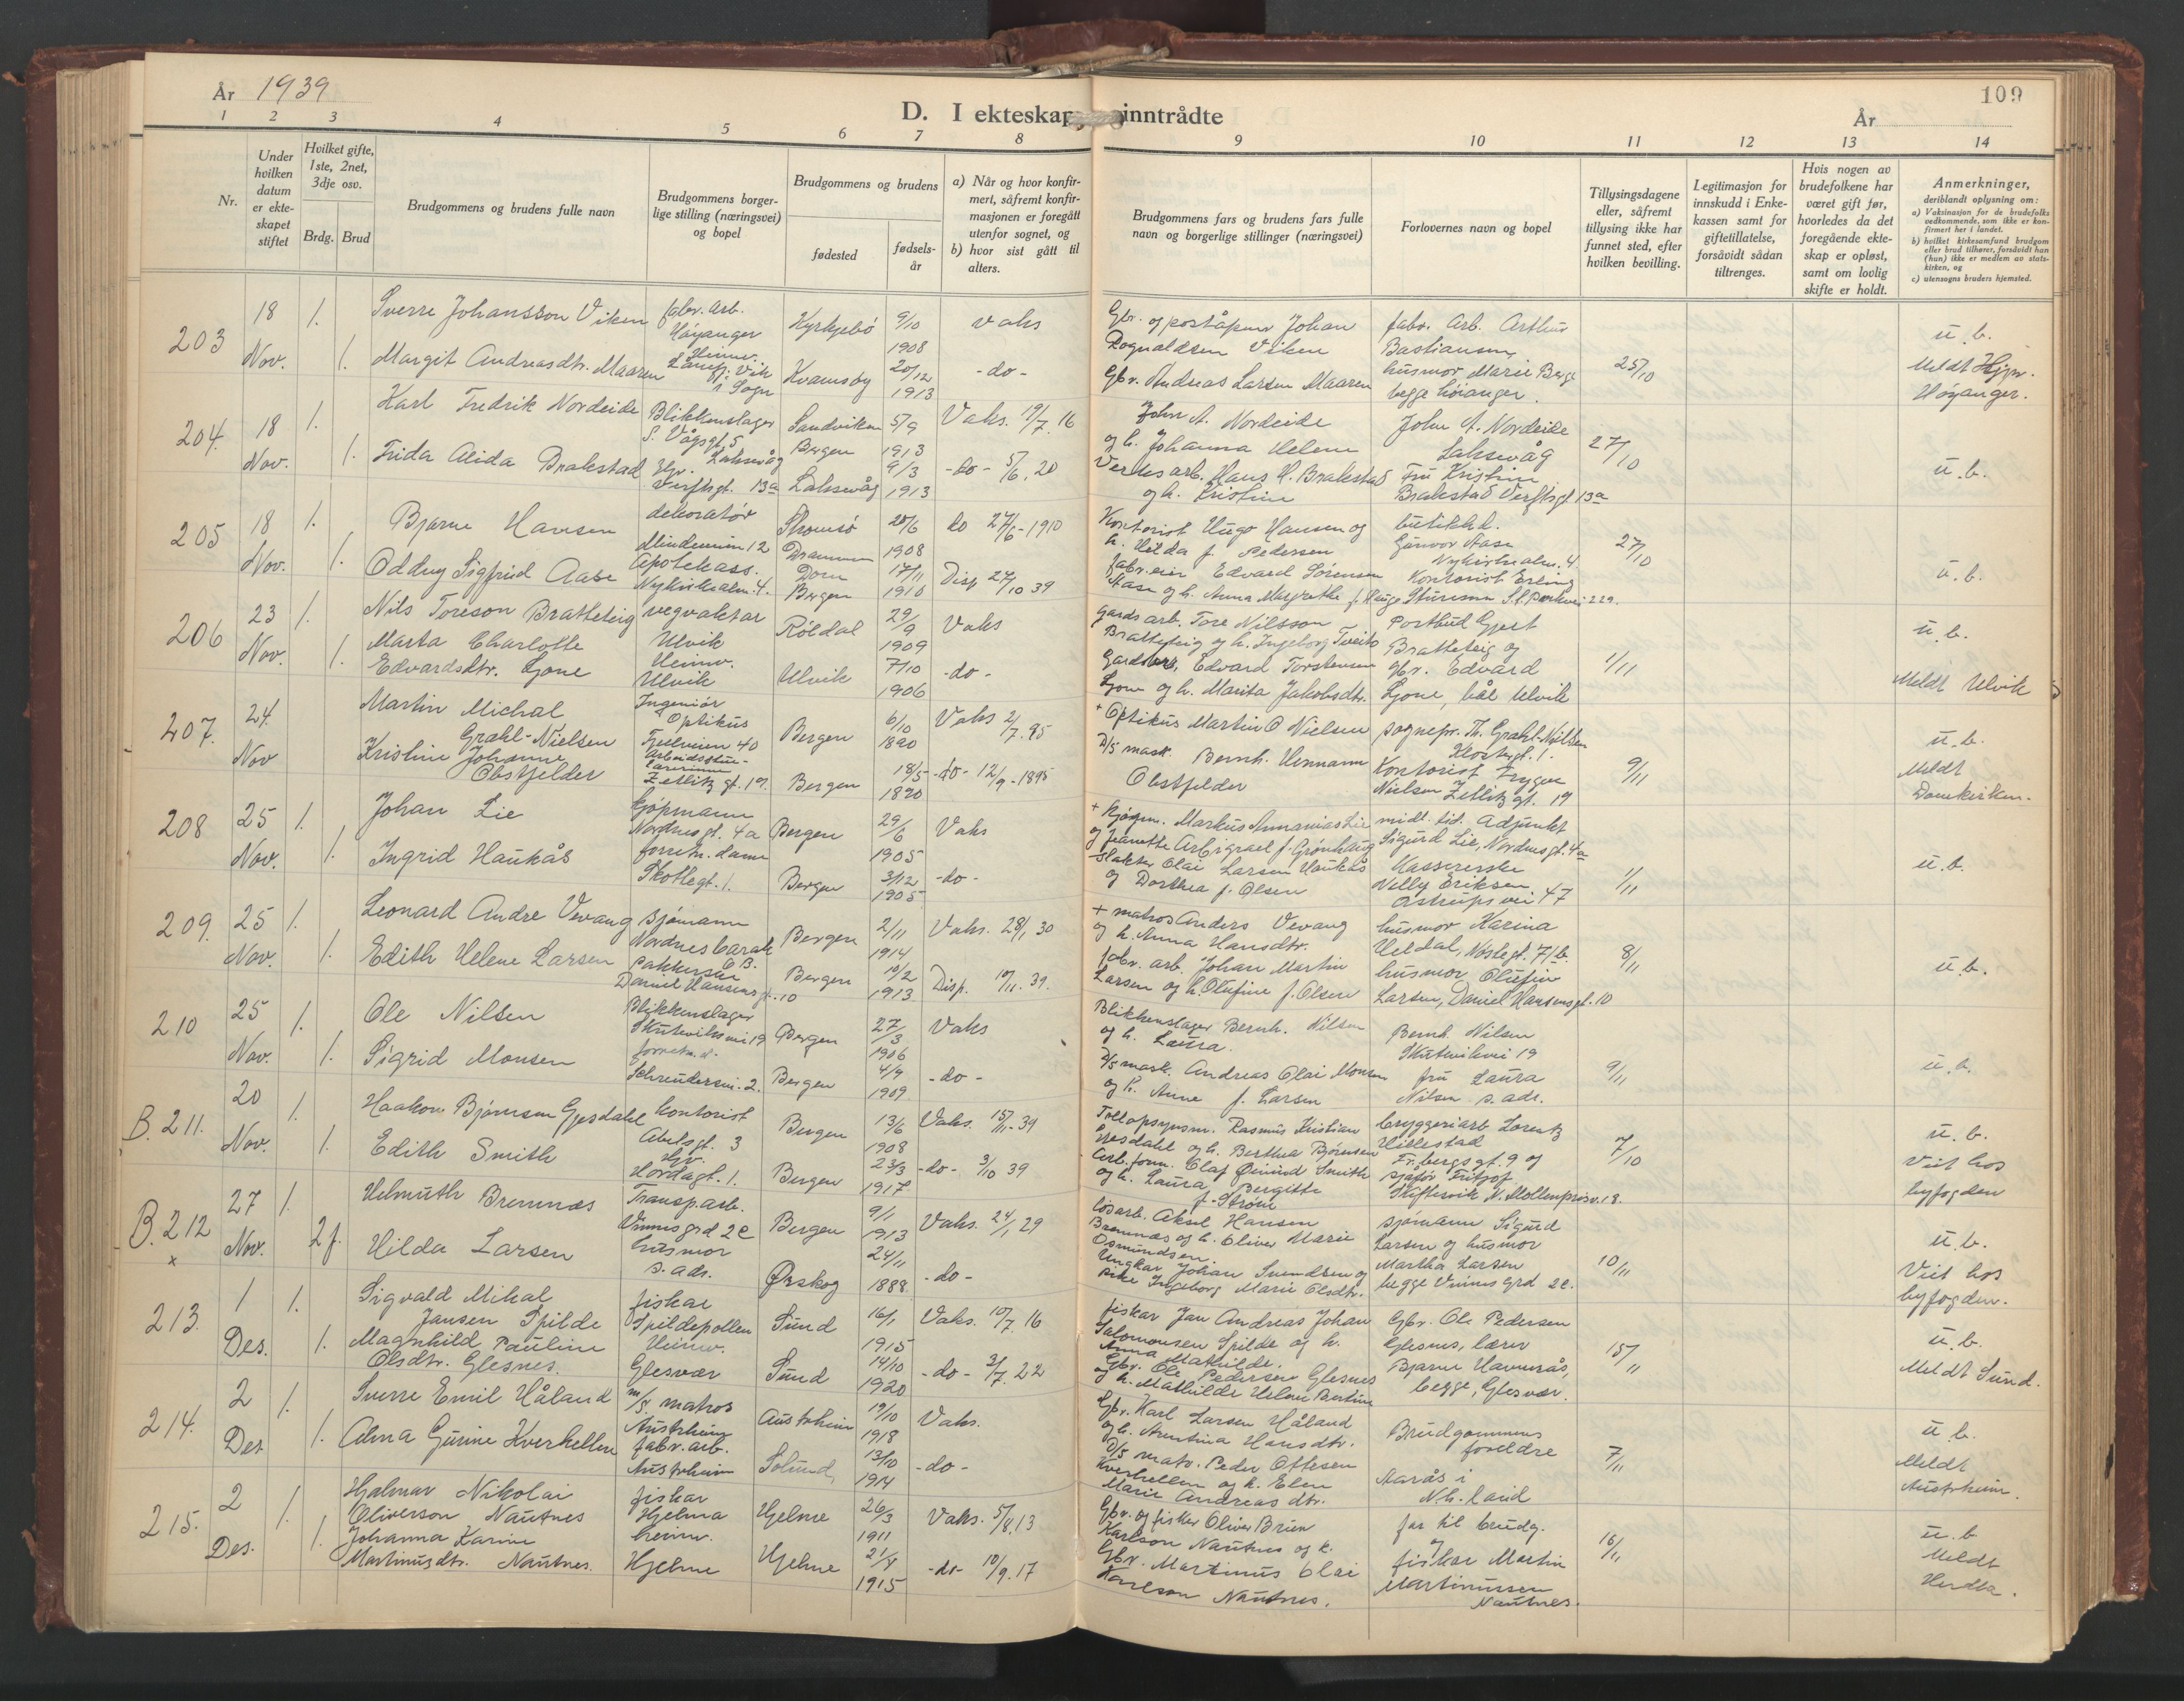 År 1939
D. I ekteskap inntrådte
År
109
1 2 3 4 5 6 7 8 9 10 11 12 13 14
Nr.
Under hvilken datum er ekteskapet stiftet
Hvilket gifte, 1ste, 2net, 3dje osv.
Brdg. Brud
Brudgommens og brudens fulle navn
Brudgommens borgerlige stilling (næringsvei) og bopel
Brudgommens og brudens
fødested
fødselsår
a) Når og hvor konfirmert, såfremt konfirmasjonen er foregått utenfor sognet, og
b) hvor sist gått til alters.
Brudgommens fars og brudens fars fulle navn og borgerlige stillinger (næringsvei)
Forlovernes navn og bopel
Tillysingsdagene eller, såfremt tillysing ikke har funnet sted, efter hvilken bevilling.
Legitimasjon for innskudd i Enkekassen samt for giftetillatelse, forsåvidt sådan tiltrenges.
Hvis nogen av brudefolkene har været gift før, hvorledes da det foregående ekteskap er opløst, samt om lovlig skifte er holdt.
Anmerkninger, deriblandt oplysning om:
a) Vaksinasjon for de brudefolks vedkommende, som ikke er konfirmert her i landet.
b) hvilket kirkesamfund brudgom eller brud tilhører, forsåvidt han (hun) ikke er medlem av statskirken, og
c) utensogns bruders hjemsted.
203
18 Nov.
1. 1.
Sverre Johansson Viken
Margit Andreasdtr. Maaren
fabr. arb.
Høyanger
Heimv.
i Vik
i Sogn
Kyrkjebø
9/10 1908
vaks
Kvamsøy
20/12 1913
-do-
Gbr. og poståpner Johan
Rognaldsen Viken
Gbr. Andreas Larsen Maaren
fabr. arb. Arthur
Bastiansen,
husmor Marie Berge
begge Höianger.
25/10
u. b.
Meldt
Høyanger.
204.
18 Nov.
1. 1.
Karl Fredrik Nordeide
Frida Alida Brakestad
Blikkenslager
S. Vågsgt. 5
Laksevåg
Verftsgt. 13a
Sandviken
Bergen
5/9 1913
Vaks. 19/7. 16
Laksevåg
9/3 1913
-do- 5/6. 20
John A. Nordeide
og h. Johanna Helene
Verks arb. Hans H. Brakestad
og h. Kristine
John A. Nordeide
Laksevåg
Fru Kristine
Brakestad Verftsgt 13a
27/10
u. b.
205
18 Nov.
1. 1.
Bjarne Hansen
Oddny Sigfrid Aase
dekoratör
12
Apotekass.
Nykirkealm. 4.
Strømsö
Drammen
20/6 1908
do 27/6-1910
Dom
Bergen
17/11 1910
Disp 27/10 39
Kontorist Hugo Hansen og
h. Hilda f. Pedersen
fabr.eier Edvard Sørensen
Aase og h. Anna Margrethe f. Hauge
Gunvor Aase
Nykirkealm. 4
Kontorist Erling
27/10
u. b.
206
23 Nov.
1. 1.
Nils Toreson Bratteteig
Marta Charlotte
Edvardsdtr. Ljone
vegvaktar
Ulvik
Heimv.
Ulvik
Röldal
29/9 1909
Vaks
Ulvik
7/10 1906
-do-
Gards arb. Tore Nilsson
Bratteteig og h. Ingeborg Tveito
Edvard Torstensen
Ljone og h. Marita Jakobsdtr.
Postbud Gjert
Bratteteig og
gbr. Edvard
Ljone, båe Ulvik
1/11
u. b.
Meldt Ulvik
207.
24. Nov
Martin Michal
Grahl-Nielsen
Kristine Johanne
Obstfelder
Ingeniör
Optikus
Fjellveien 40
Arbeidsstue-
lærerinne
Zetlitz gt. 19
Bergen
6/10 1890
Vaks 2/7. 95
Bergen
18/5 1890
-do- 12/9-1895
+ Optikus Martin O Nielsen
D/S mask. Bernh. Hermann
Obstfelder
sognepr. Th. Grahl-Nielsen
Klostergt. 1.
Kontorist Trygve
Nielsen Zetlitz gt. 19
9/11
u. b.
Meldt
Domkirken.
208
25 Nov.
1. 1.
Johan Lie
Ingrid Haukås
kjöpmann
Nordnesgt. 4a
forretn. dame
Skottegt. 1.
Bergen
29/6 1905
Vaks
Bergen
3/12 1905
-do-
+ Kjöpm. Markus Annanias Lie
og Jeanette f. Grönhaug
Slakter Olai Larsen Haukås
og Dorthea f. Olsen
midl. tid. Adjunkt
Sigurd Lie, Nordnesgt. 4a
Kassererske
Nelly Eriksen
47
1/11
u. b.
209.
25 Nov.
1. 1.
Leonard Andre Vevang
Edith Helene Larsen
Sjömann
Nordnesbarak
Pakkerske
Daniel Hansens gt. 10
Bergen
2/11 1914
Vaks. 28/1 30
Bergen
10/2 1913
Disp. 10/11. 39.
+ matros Anders Vevang
og h. Anna Hansdtr.
fabr. arb. Johan Martin
Larsen og h. Olufine f. Olsen
husmor Karina
Heldal, Nöstegt. 71b.
husmor Olufine
Larsen, Daniel Hansensgt. 10
8/11
u. b.
210
25 Nov.
1. 1.
Ole Nilsen
Sigrid Monsen
Blikkenslager
Skuteviksvei 19
forretn. d.
Bergen
27/3 1906
Vaks
Bergen
4/9 1909
-do-
Blikkenslager Bernh. Nilsen
og h. Laura.
D/S mask. Andreas Olai Monsen
og h. Anne f. Larsen
Bernh. Nilsen
Skuteviksvei 19
fru Laura
Nilsen s. adr.
9/11
u. b.
B. 211.
20 Nov.
1. 1.
Haakon Bjørnsen Gjesdahl
Edith Smith
Kontorist
Abelsgt. 3
Hjv.
Hordagt. 1.
Bergen
13/6 1908
Vaks. 15/11-39
Bergen
23/3 1917
-do- 3/10 39
Tollopsynsm. Rasmus Kristian
Gjesdahl og h. Berthea Bjørnsen
Arb.form. Olaf Øivind Smith
og h. Laura Bergitte
f. Ström
bryggeriarb Lorentz
Hillestad
Fr.bergsgt. 9 og
sjåför Fritjof
Skiftesvik N. Möllenprisv. 18.
7/10
u. b.
Viet hos
byfogden
B. 212
x
27 Nov.
1. 2 f.
Helmuth Bremnes
Hilda Larsen
Transp.arb.
Vinnesgrd 2c
husmor
s. adr.
Bergen
9/1 1913
Vaks. 24/1 29
Ørskog
24/11 1888
-do-
lösarb. Aksel Hansen
Bremnes og h. Oliver Marie
Osmundsen
Ungkar Johan Svendsen og
pike Ingeborg Marie Olsdtr.
Sjömann Sigurd
Larsen og husmor
Martha Larsen
begge Vinnesgrd 2c.
10/11
u. b.
Viet hos
byfogden.
213.
1 Des.
1. 1.
Sigvald Mikal
Jansen Spilde
Magnhild Pauline
Olsdtr. Glesnes.
fiskar
Spildepollen
Heimv.
Glesvær
Sund
16/1 1915
Vaks. 10/7. 16
Sund
14/10 1920
-do- 3/7. 22
fiskar Jan Andreas Johan
Salomonsen Spilde og h.
Anna Mathilde.
Gbr. Ole Pedersen Glesnes
og h. Mathilde Helene Bertine
Gbr. Ole Pedersen
Glesnes, lærer
Bjarne Havnerås,
begge, Glesvær.
15/11
u. b.
Meldt Sund.
214.
2 Des
1. 1.
Sverre Emil Håland
Alma Gurine Kverhellen
m/s. matros
Austrheim
fabr. arb.
Austrheim
Austrheim
19/10 1918
Vaks.
Solund
13/10 1914
-do-
Gbr. Karl Larsen Håland
og h. Arentina Hansdtr.
D/S matr. Peder Ottesen
Kverhellen og h. Elen
Marie Andreasdtr.
Brudgommens
foreldre
Aarås i
N.h. land
7/11
u. b.
Meldt
Austrheim.
215.
2 Des.
1. 1.
Hjalmar Nikolai
Oliverson Nautnes
Johanna Karine
Martinusdtr. Nautnes.
fiskar
Hjelma
heimv.
Hjelme
Hjelme
26/3 1911
Vaks. 5/8. 13
Hjelme
21/8 1915
-do- 10/9. 17
Gbr. og fisker Oliver Brun
Karlson Nautnes og h.
Gbr. Martinus Olai
Karlson Nautnes.
far til brudg.
og
fiskar Martin
Martinussen
Nautnes.
16/11
u. b
Meldt
Herdla.